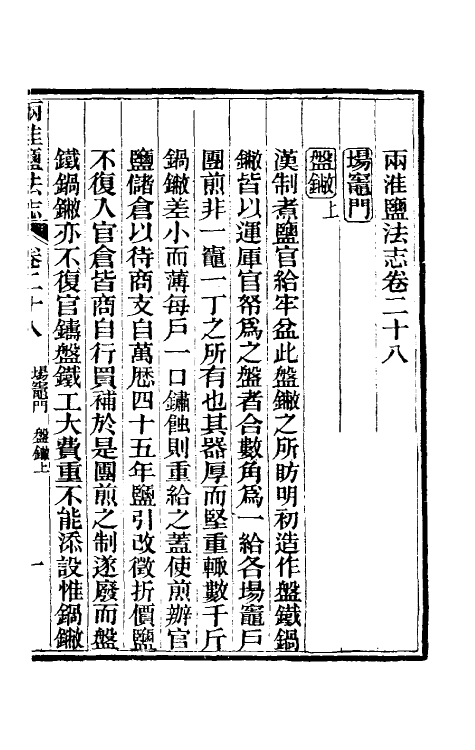 兩淮鹽法志卷二十八
場竈門
盤𨫼上
漢制煮鹽官給牢盆此盤𨫼之所昉明初造作盤鐵鍋
𨫼皆以運庫官帑爲之盤者合數角爲一給各場竈戶
團煎非一竈一丁之所有也其器厚而堅重輒數千斤
鍋𨫼差小而薄每戶一口鏽蝕則重給之蓋使煎辦官
鹽儲倉以待商支自萬厯四十五年鹽引改徵折價鹽
不復入官倉皆商自行買補於是團煎之制遂廢而盤
鐵鍋𨫼亦不復官鑄盤鐵工大費重不能添設惟鍋𨫼
兩淮鹽法志 卷二十八 場竈門 盤𨫼上 一